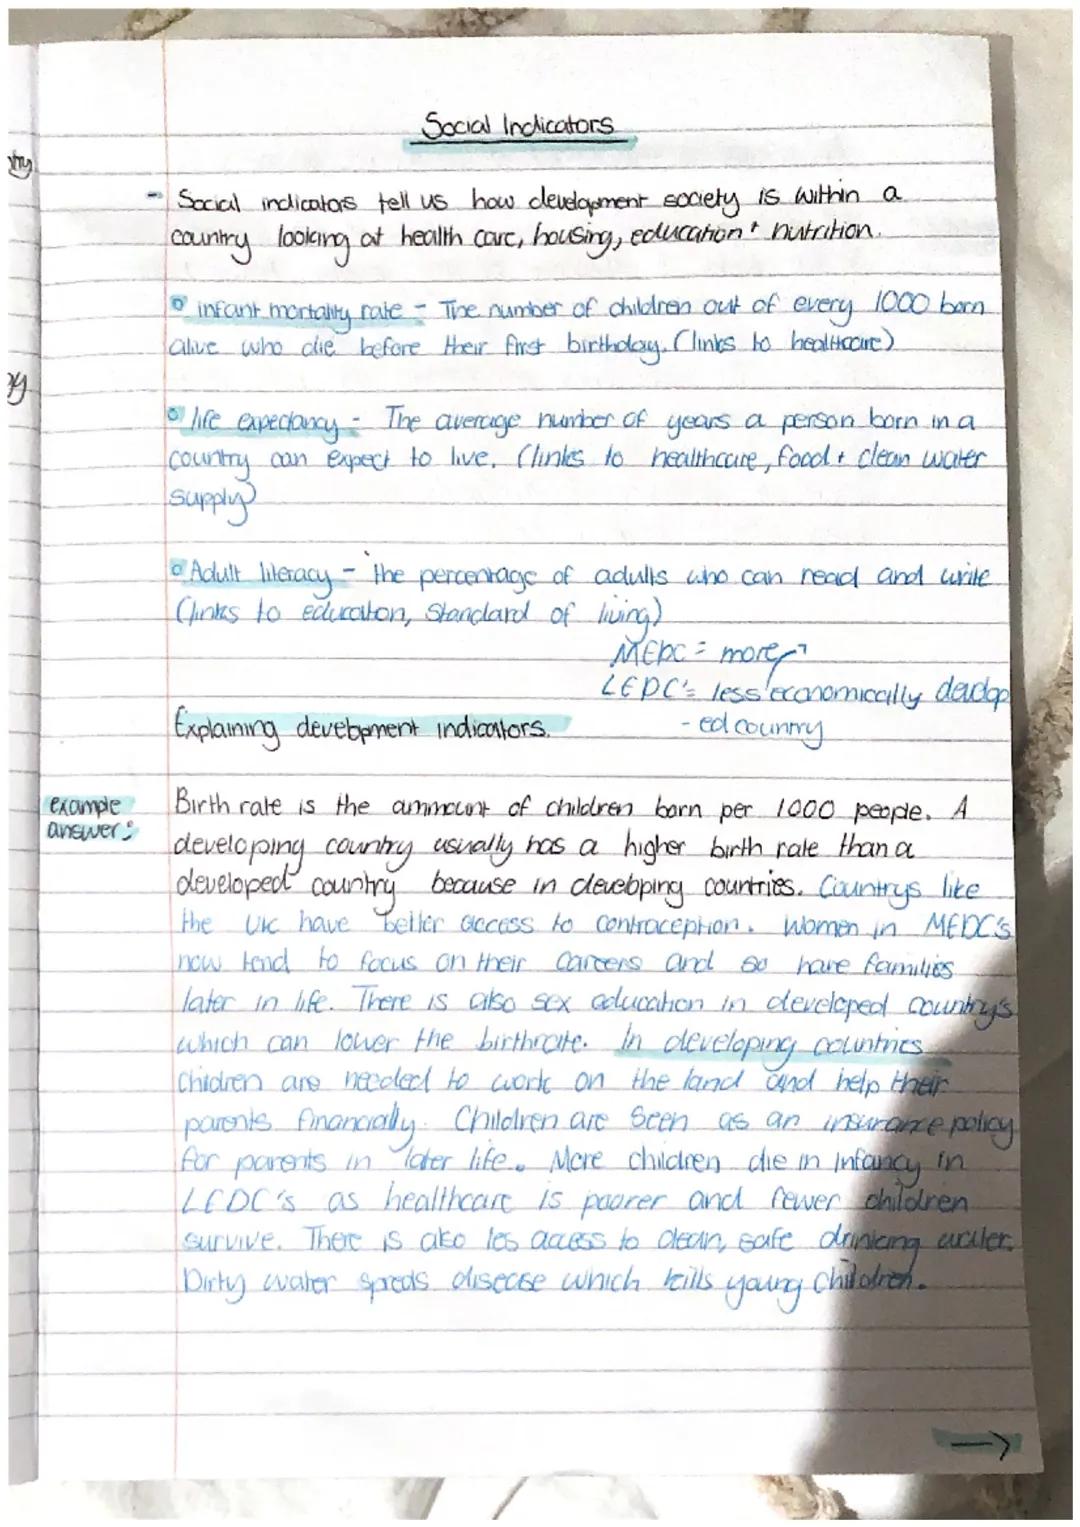 Social Indicators
- Social indicators tell us how development society is within a
country looking at health care, housing, education + nutrition.
infant mortality rate - The number of children out of every 1000 born
alive who die before their first birthday. (links to healthcare)
life expectancy - The average number of years a person born in a
country can expect to live. (links to healthcare, food + clean water
supply)
Adult literacy - the percentage of adults who can read and write
(links to education, Standard of living)
MEDC = more
LEDC's = less economically develop
- ed country
Explaining development indicators.
example
answer:
Birth rate is the ammount of children born per 1000 people. A
developing country usually has a higher birth rate than a
developed country because in developing countries. Countrys like
the UK have better access to contraception. Women in MEDC's
now tend to focus on their careers and so have families
later in life. There is also sex education in developed country's
which can lower the birthrate. In developing countries
children are needed to work on the land and help their
parents financially. Children are seen as an insurance policy
for parents in later life. More children die in infancy in
LEDC's as healthcare is poorer and fewer children
survive. There is also les access to clean, safe drinking water.
Dirty water spreds disease which kills young children.
→